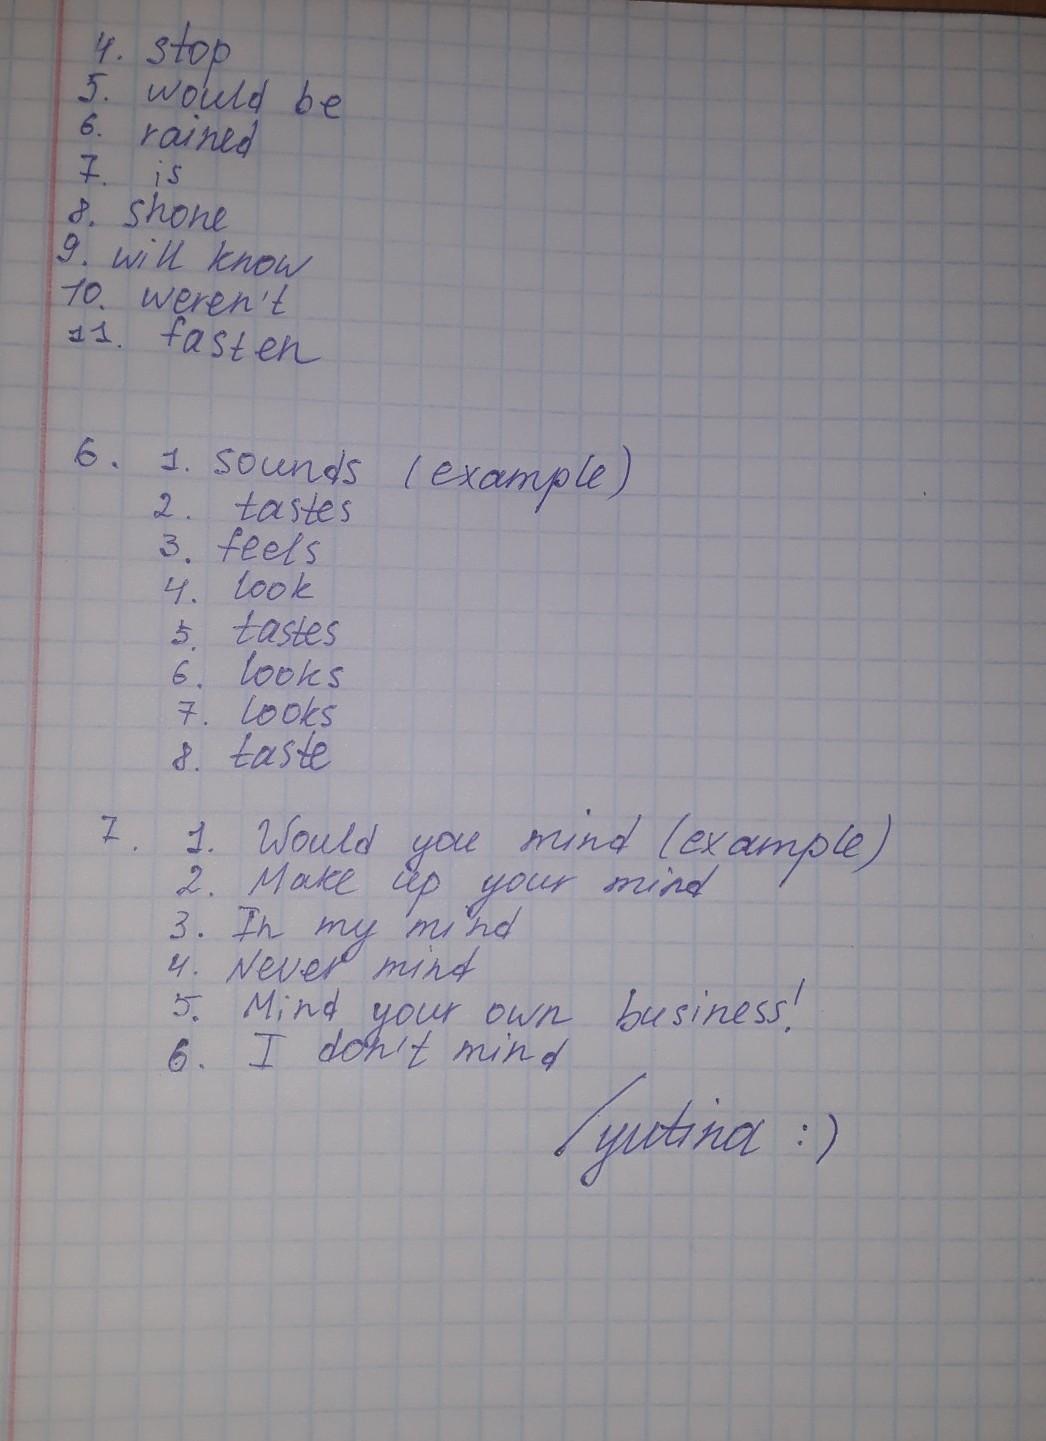 4. stop
5. would be
6. rained
7. is
8. shone
9. will know
10. weren't
11. fasten
6. 1. sounds (example)
2. tastes
3. feels
4. look
5. tastes
6. looks
7. looks
8. taste
7. 1. Would you mind (example)
2. Make up your mind
3. In my mind
4. Never mind
5. Mind your own business!
6. I don't mind
Lyutina :)